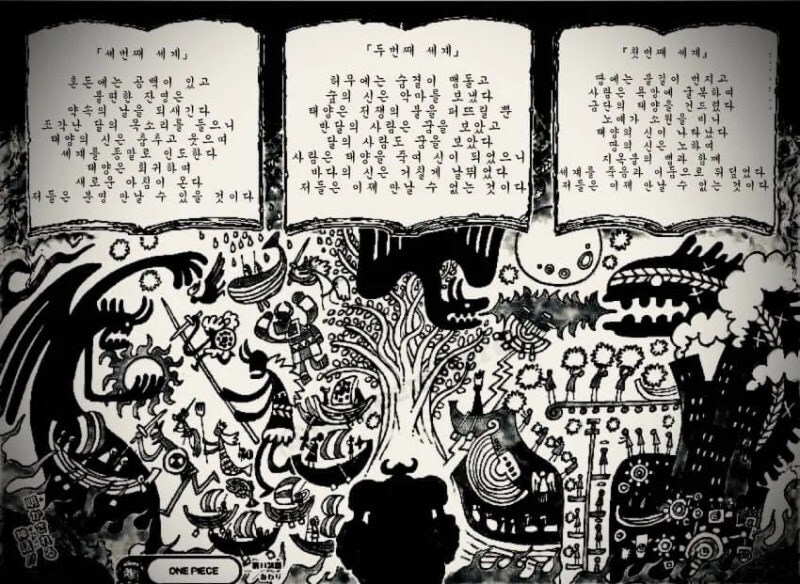 『첫번째 세계』
땅에는 불길이 번지고
사람은 욕망에 굴복하여
금단의 태양을 건드렸다
노예가 소원을 비니
태양의 신이 나타났다
땅의 신은 노하여
지옥불의 뱀과 함께
세계를 죽음과 어둠으로 뒤덮었다
저들은 이제 만날 수 없는 것이다
『두번째 세계』
허무에는 숨결이 맴돌고
숲의 신은 악마를 보냈다
태양은 전쟁의 불을 퍼뜨릴 뿐
반달의 사람은 꿈을 보았고
달의 사람도 꿈을 보았다
사람은 태양을 죽여 신이 되었으니
바다의 신은 거칠게 날뛰었다
저들은 이제 만날 수 없는 것이다
『세번째 세계』
혼돈에는 공백이 있고
불편한 잔영은
약속의 날을 되새긴다
조각난 달의 목소리를 들으니
태양의 신은 춤추고 웃으며
세계를 종말로 인도한다
태양은 회귀하여
새로운 아침이 온다
저들은 분명 만날 수 있을 것이다
ONE PIECE